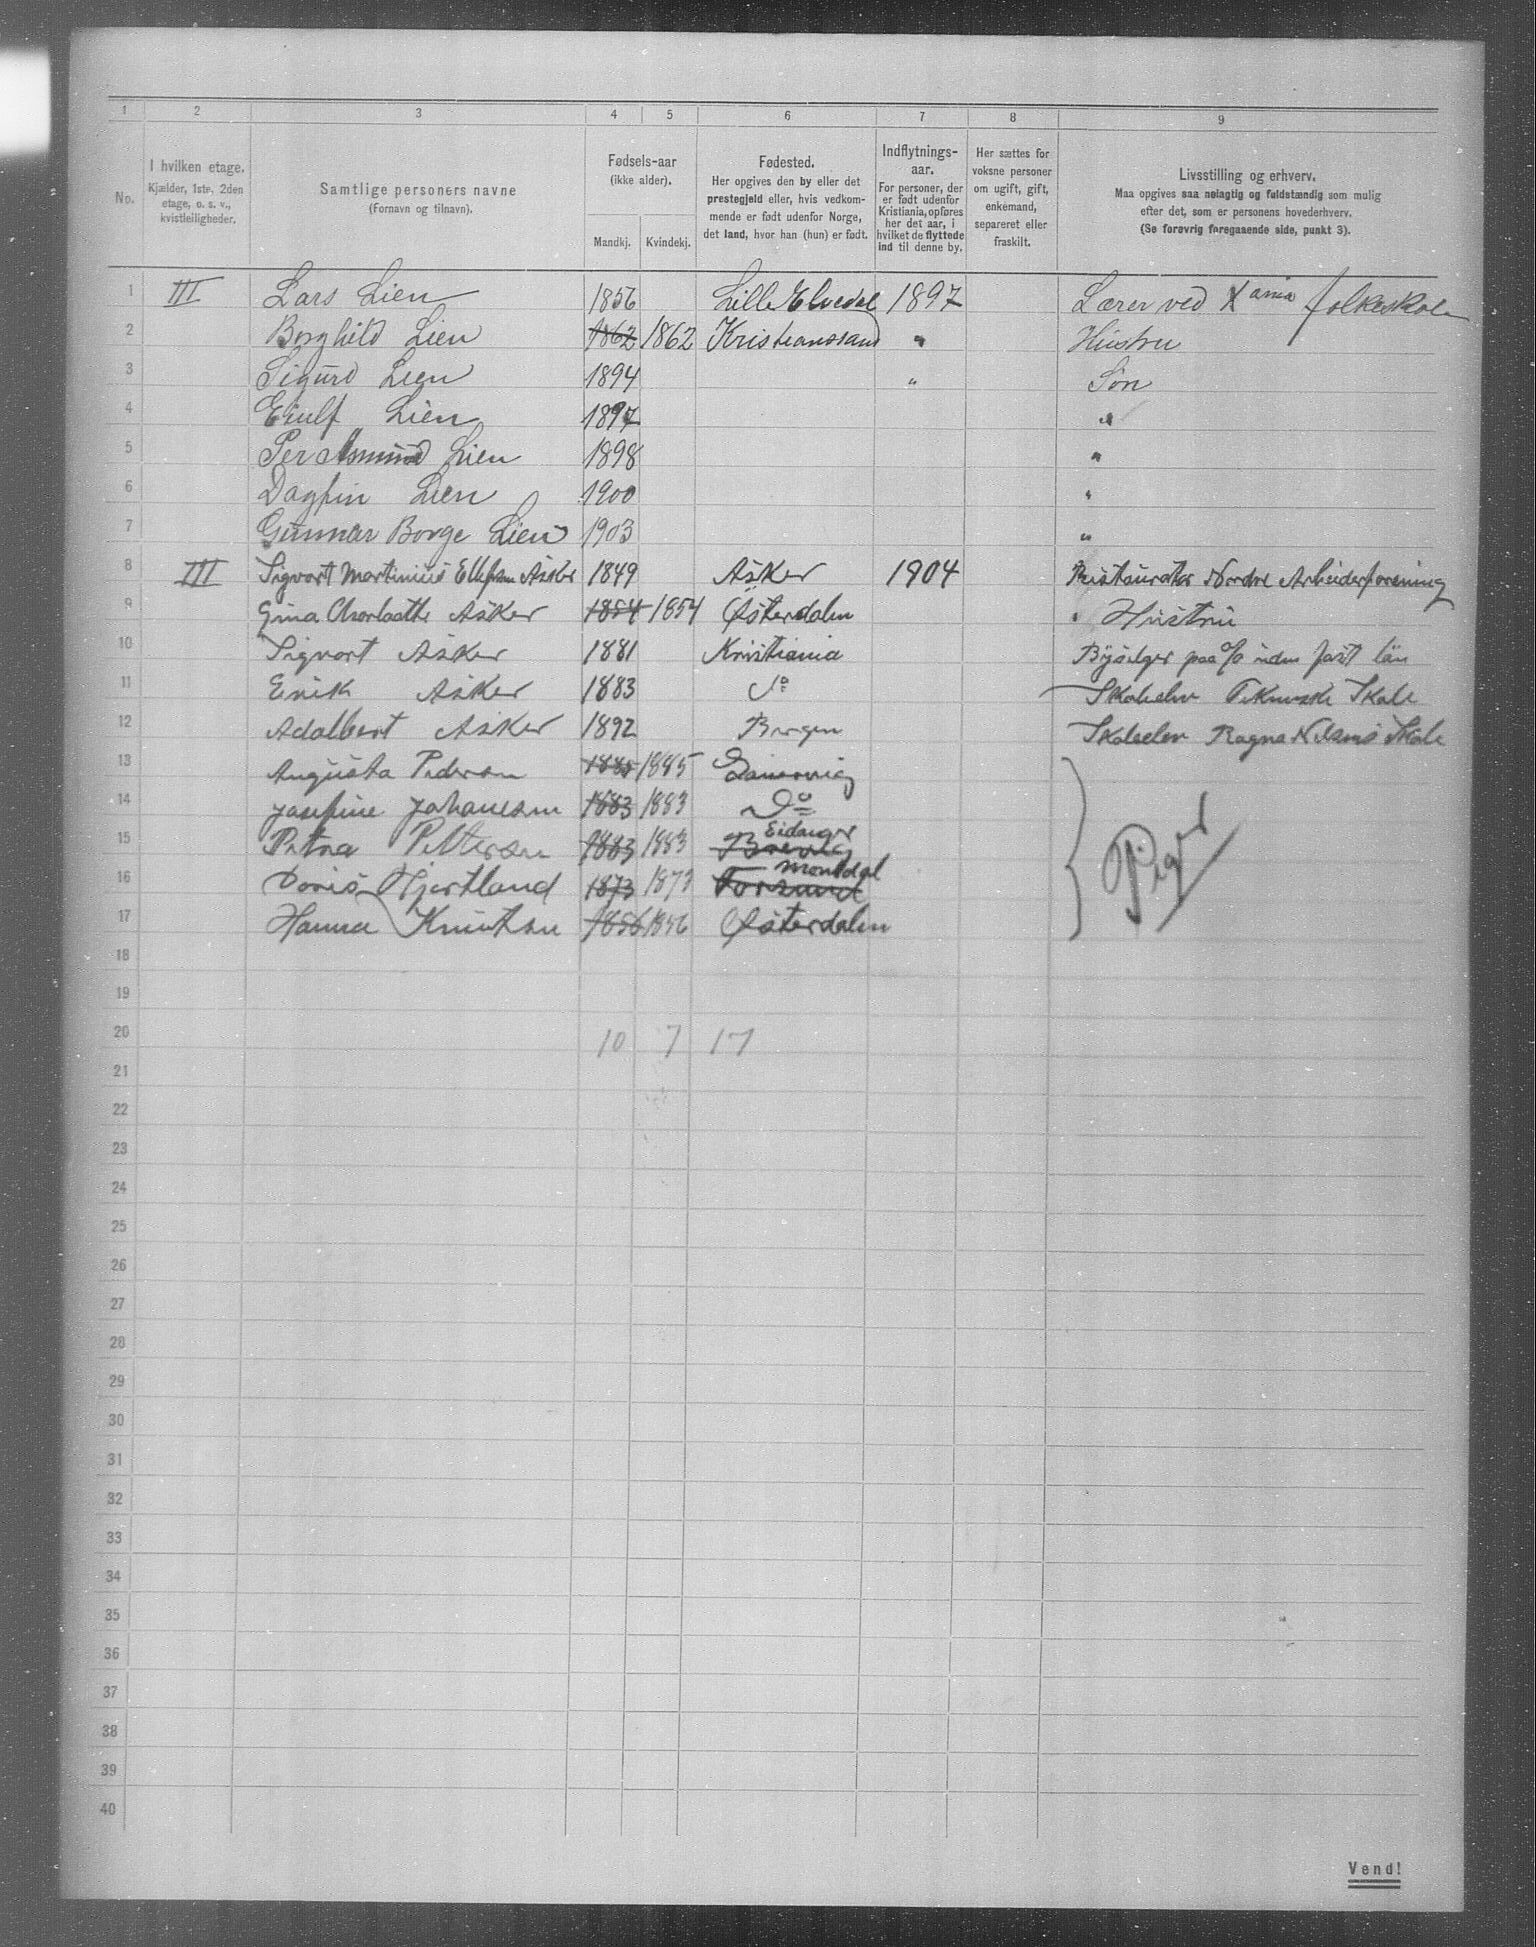 1 2 3 4 5 6 7 8 9
No.
I hvilken etage.
Kjælder, 1ste, 2den
etage, o. s. v.,
kvistleiligheder.
Samtlige personers navne
(Fornavn og tilnavn).
Fødsels-aar
(ikke alder).
Mandkj. Kvindekj.
Fødested.
Her opgives den by eller det
prestegjeld eller, hvis vedkom-
mende er født udenfor Norge,
det land, hvor han (hun) er født.
Indflytnings-
aar.
For personer, der
er født udenfor
Kristiania, opføres
her det aar, i
hvilket de flyttede
ind til denne by.
Her sættes for
voksne personer
om ugift, gift,
enkemand,
separeret eller
fraskilt.
Livsstilling og erhverv.
Maa opgives saa nøiagtig og fuldstændig som mulig
efter det, som er personens hovederhverv.
(Se forøvrig foregaaende side, punkt 3).
1 III Lars Lien 1856 Lille Elvedal 1897 Lærer ved Xania folkeskole
2 Borghild Lien 1862 1862 Kristianssand " Hustru
3 Sigurd Lien 1894 " Søn
4 Eiulf Lien 1897 "
5 Per Asmund Lien 1898 "
6 Dagfin Lien 1900 "
7 Gunnar Borge Lien 1903 "
8 III Sigvart Martinius Ellefsen Asker 1849 Asker 1904 Restauratør Nordre Arbeiderforening
9 Gina Charlotte Asker 1854 1854 Østerdalen " Hustru
10 Sigvart Asker 1881 Kristiania Bysælger paa % uden fast løn
11 Erik Asker 1883 Do Skoleelev Tekniske Skole
12 Adalbert Asker 1892 Bergen Skoleelev Ragna Nilsens Skole
13 Augusta Pedersen 1885 1885
14 Josefine Johanesen 1883 1883 Do
15 Petra Pettersen 1883 1883 Brevig Eidanger
16 Doris Hjertland 1873 1873 Forsand
17 Hanna Knutsen 1856 1856 Østerdalen
Piger
18
19
20 10 7 17
21
22
23
24
25
26
27
28
29
30
31
32
33
34
35
36
37
38
39
40
Vend!